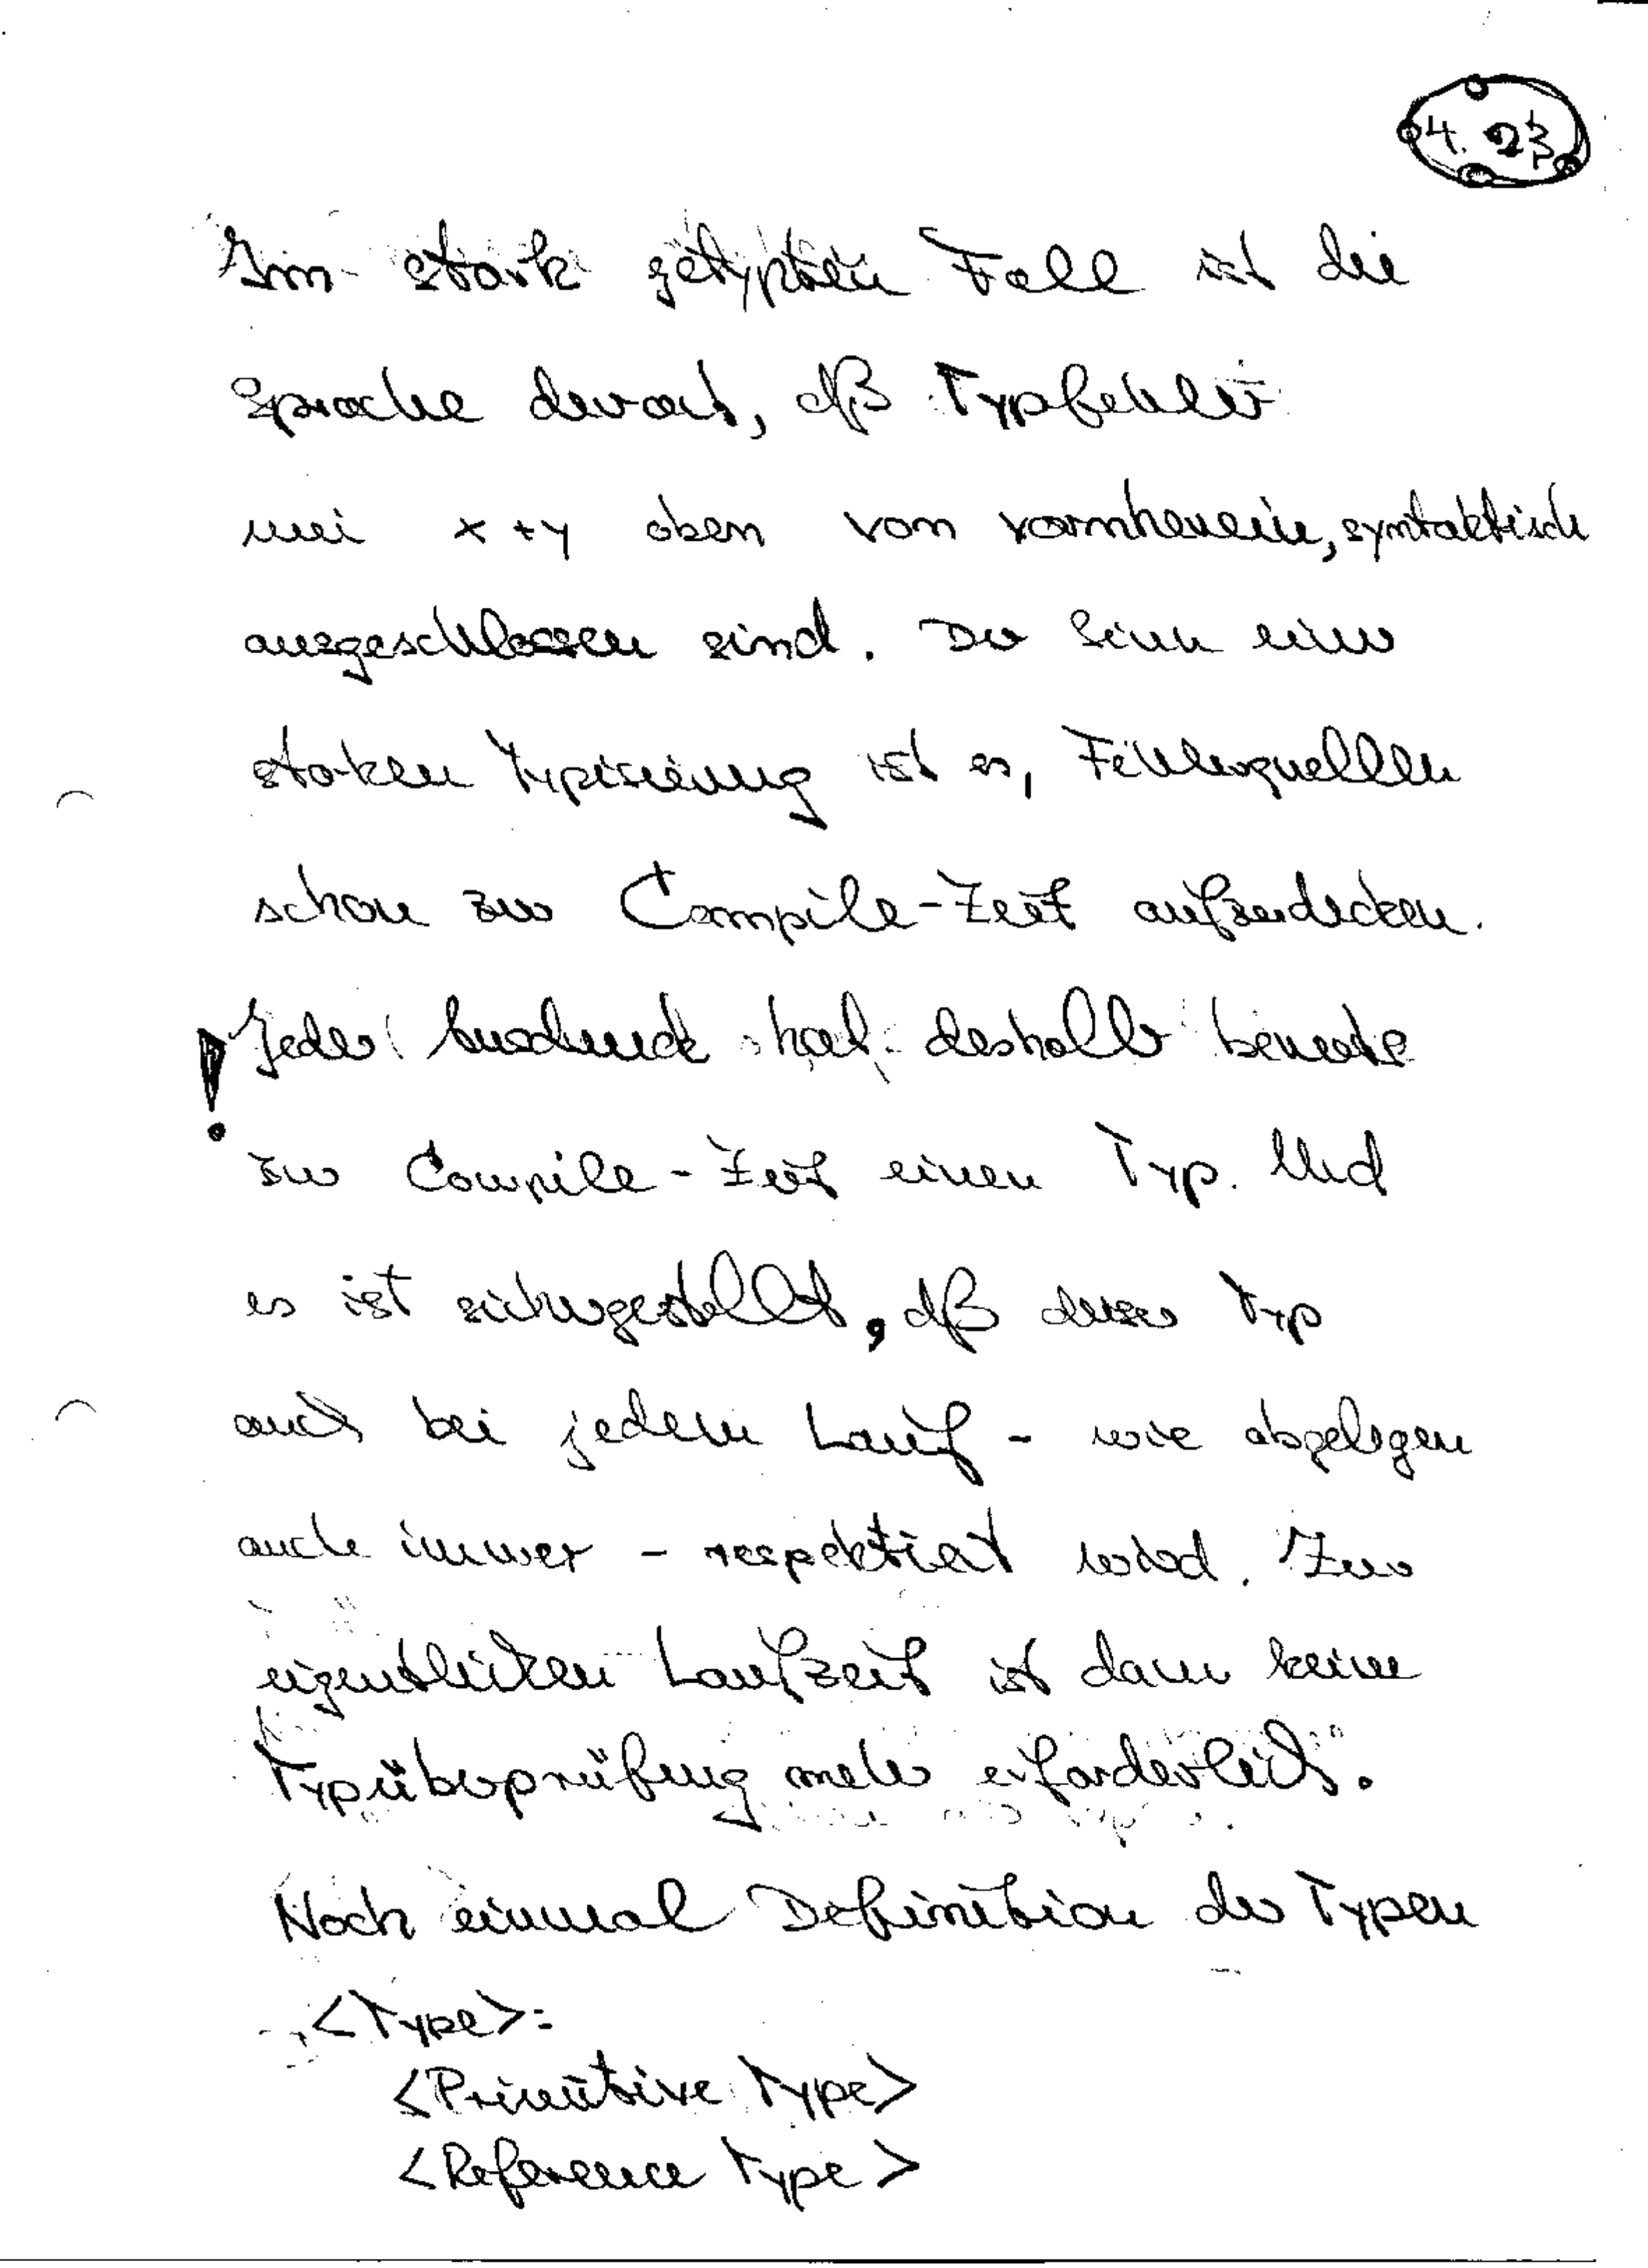 4.23
Im stark getypten Fall ist die
Sprache derart, dß Typfehler
wei x + y oben von vornherein, syntaktisch
ausgeschlossen sind. Der Sinn einer
starken Typisierung ist es, Fehlerquellen
schon zur Compile-Zeit aufzudecken.
! Jeder Ausdruck hat deshalb bereits
zur Compile-Zeit einen Typ. Und
es ist sichergestellt, dß dieser Typ
auch bei jedem Lauf - wie abgelegen
auch immer - respektiert wird. Zur
eigentlichen Laufzeit ist dann keine
Typüberprüfung mehr erforderlich.
Noch einmal Definition der Typen
<Type>:
<Primitive Type>
<Reference Type>